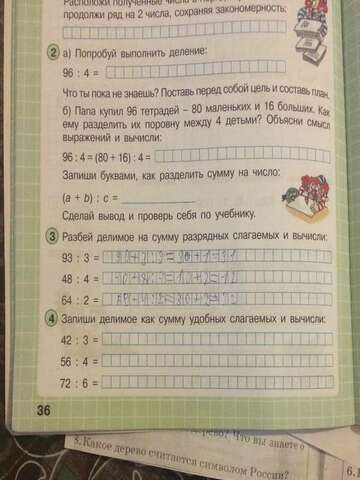 Расположи полученные числа в пор
продолжи ряд на 2 числа, сохраняя закономерность:
2 а) Попробуй выполнить деление:
96 : 4 =
Что ты пока не знаешь? Поставь перед собой цель и составь план.
б) Папа купил 96 тетрадей – 80 маленьких и 16 больших. Как
ему разделить их поровну между 4 детьми? Объясни смысл
выражений и вычисли:
96 : 4 = (80 + 16) : 4 =
Запиши буквами, как разделить сумму на число:
(a + b) : c =
Сделай вывод и проверь себя по учебнику.
3 Разбей делимое на сумму разрядных слагаемых и вычисли:
93 : 3 =
48 : 4 =
64 : 2 =
4 Запиши делимое как сумму удобных слагаемых и вычисли:
42 : 3 =
56 : 4 =
72 : 6 =
36
дерево? Что вы знаете о
8. Какое дерево считается символом России?
6.